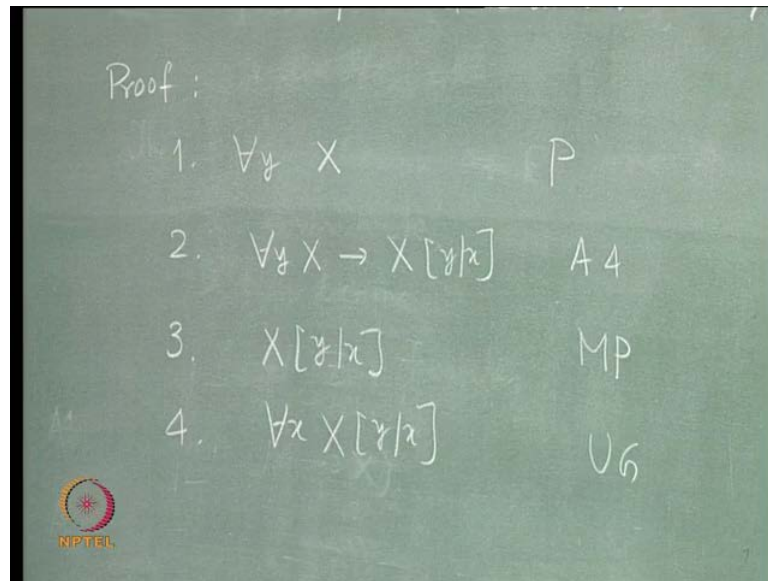 Proof :
1. ∀y X P
2. ∀y X → X [y/x] A4
3. X [y/x] MP
4. ∀x X [y/x] UG
NPTEL